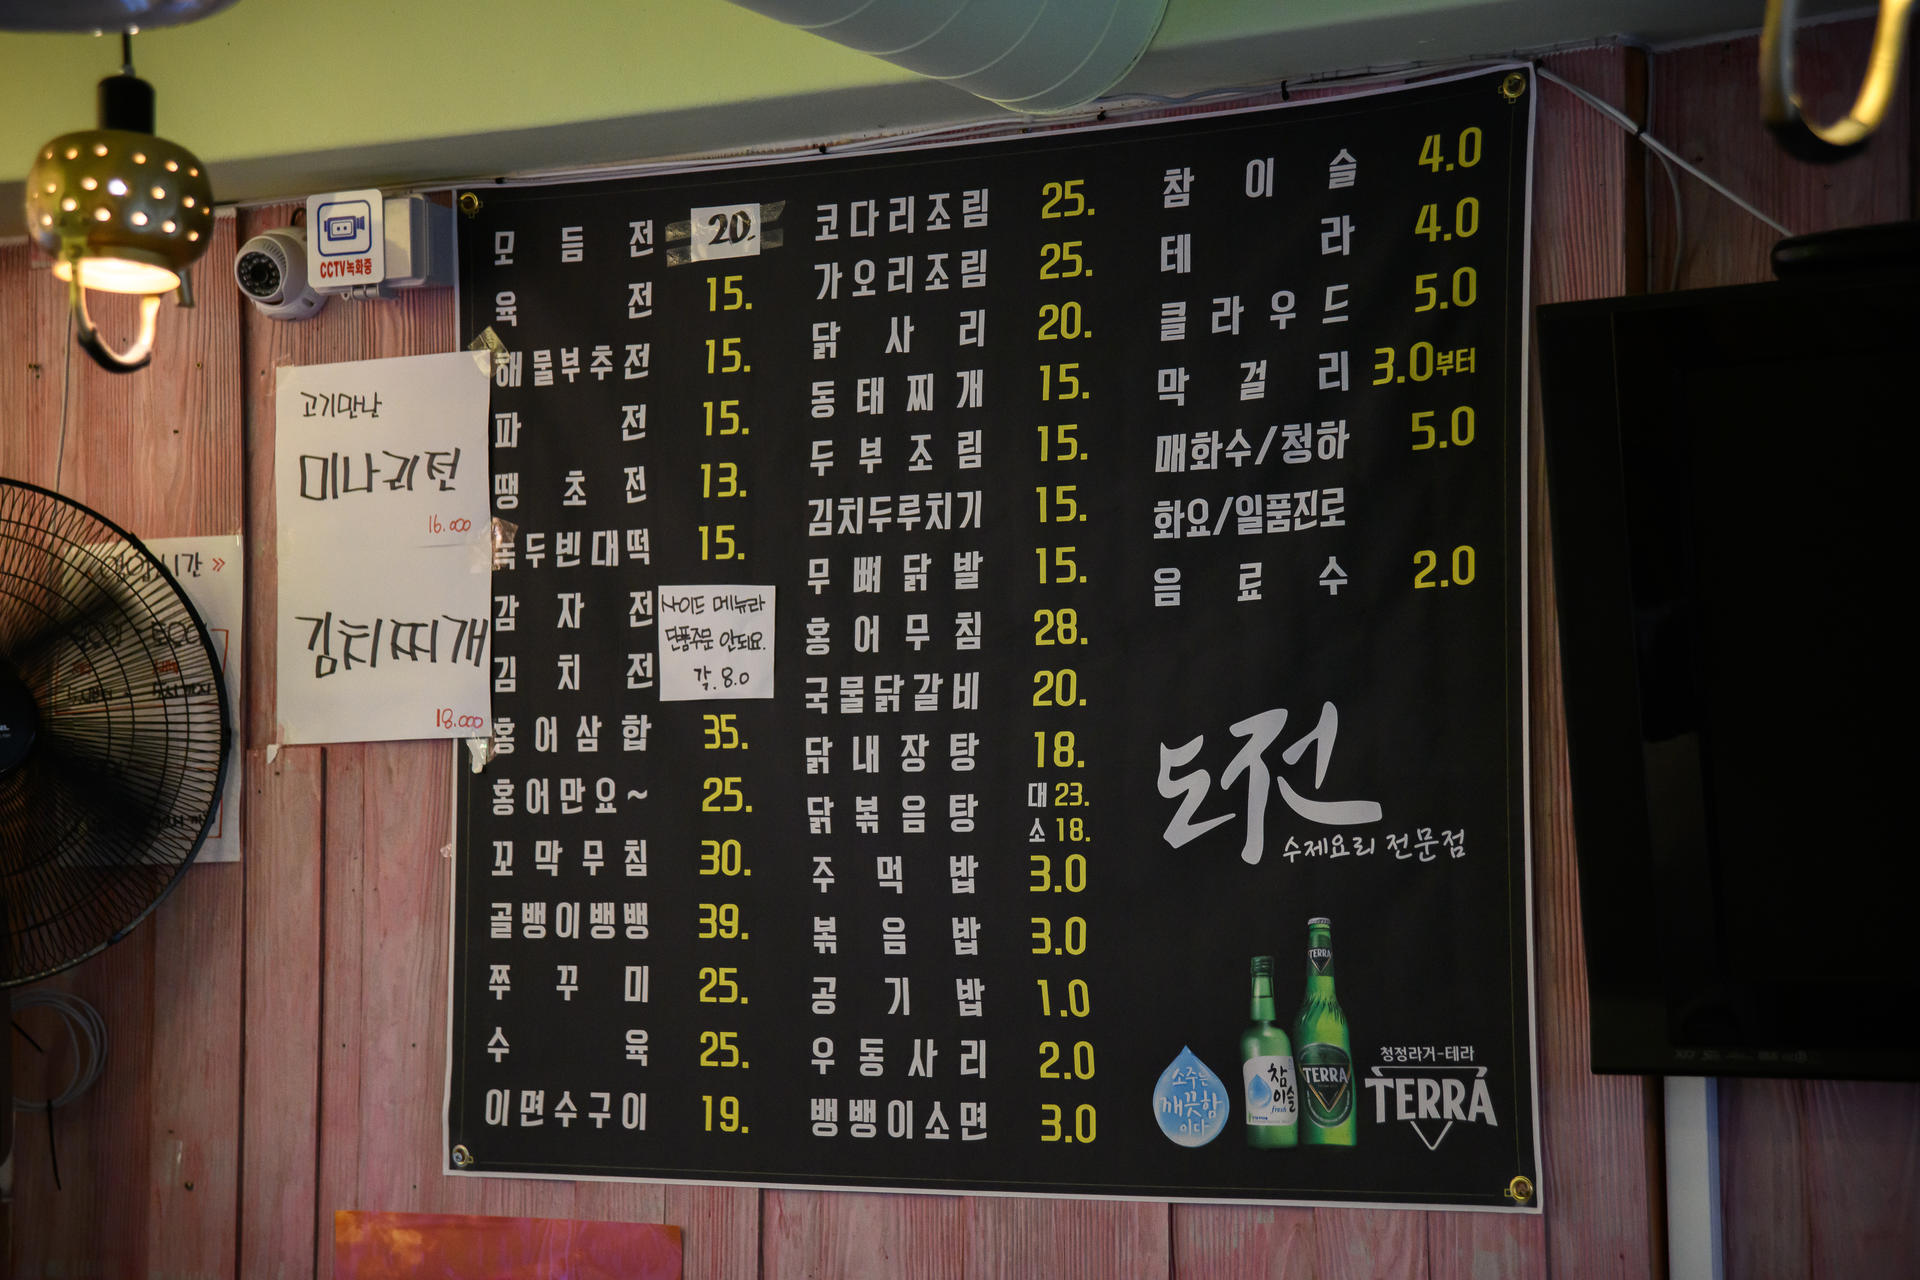 CCTV녹화중
고기만난
미나리전
16.000
김치찌개
18.000
시간 »
모듬전 20.
육전 15.
해물부추전 15.
파전 15.
땡초전 13.
녹두빈대떡 15.
감자전
김치전
사이드 메뉴라
단품주문 안돼요.
각. 8.0
홍어삼합 35.
홍어만요~ 25.
꼬막무침 30.
골뱅이뱅뱅 39.
쭈꾸미 25.
수육 25.
이면수구이 19.
코다리조림 25.
가오리조림 25.
닭사리 20.
동태찌개 15.
두부조림 15.
김치두루치기 15.
무뼈닭발 15.
홍어무침 28.
국물닭갈비 20.
닭내장탕 18.
닭볶음탕 대 23.
소 18.
주먹밥 3.0
볶음밥 3.0
공기밥 1.0
우동사리 2.0
뱅뱅이소면 3.0
참이슬 4.0
테라 4.0
클라우드 5.0
막걸리 3.0부터
매화수/청하 5.0
화요/일품진로
음료수 2.0
도전
수제요리 전문점
소주는
깨끗함
이다
참
이슬
fresh
TERRA
TERRA
청정라거-테라
TERRA